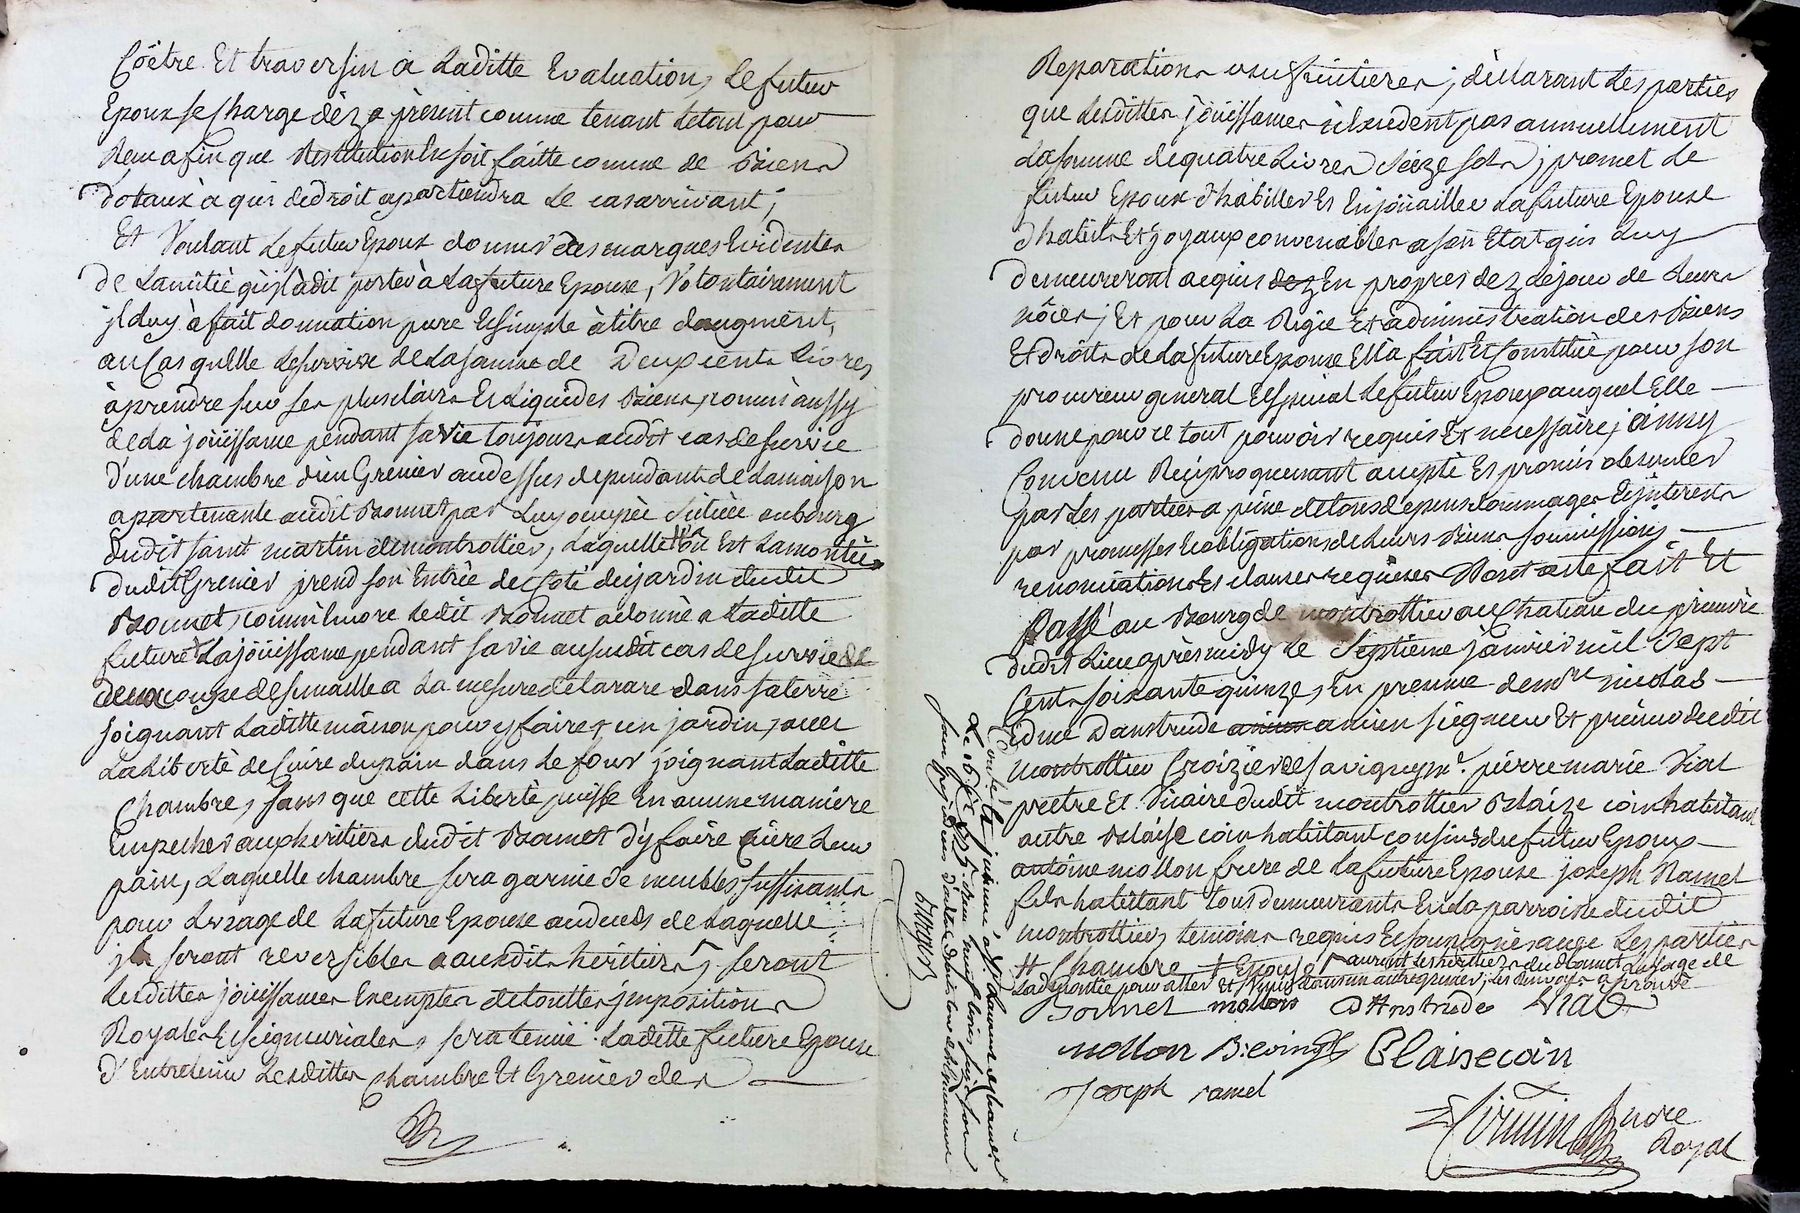 Coëtre Et traversin a Laditte Evaluation, Le futur
Epoux se Charge déz a présent comme tenant Letout pour
Reçu afin que Restitution En soit faitte comme de Biens
dotaux à qui dedroit apartiendra Le cas arrivant;
Et Voulant Le futur Epoux donner des marques Evidentes
de Lamitié qu'il à dit porter à La future Epouse, Volontairement
jl Luy à fait donnation pure Et simple à titre daugment,
au Cas quElle Le survive de La somme de Deux cents Livres
à prendre sur ses plus clairs Et Liquides Biens, comme aussy
de La joüissance pendant sa vie toujours audit cas de survie
D'une chambre d'un Grenier audessus dependants de La maison
apartenante audit Bonnet par Luy occupée sitüée au bourg
dudit saint martin de montrottier, Laquelle # Et La montée
dudit Grenier prend son Entrée de Coté du jardin dudit
Bonnet, comm'Encore Ledit Bonnet a donné a Laditte
future † La joüissance pendant sa vie au susdit cas de survie de
deux coupe de semaille a La mesure de Larare dans sa terre
joignant Laditte maison pour y faire un jardin, avec
La Liberté de Cuire du pain dans Le four joignant Laditte
Chambre, sans que cette Liberté puisse En aucune manière
Empecher aux heritiers dudit Bonnet d'y faire Cuire Leur
pain, Laquelle chambre sera garnie de meubles suffisants
pour Lusage de La future Epouse au deceds de Laquelle
jls seront reversibles auxdits héritiers, seront
Lesdittes joüissances Exemptes de touttes jmpositions
Royales Et seigneuriales, sera tenüe Laditte future Epouse
d'Entretenir Lesdittes Chambre Et Grenier des
Reparations usufruitieres; déclarant Les parties
que Lesdittes joüissances n'Excedent pas annuellement
La somme de quatre Livres seize sols; promet Le
futur Epoux d'habiller Et Enjoüailler La future Epouse
d'habits Et joyaux convenables a son Etat qui Luy
demeureront acquis En propres dez Le jour de Leurs
nôces; Et pour La Régie Et administration des Biens
Et droits de La future Epouse Ella fait Et Constitué pour son
procureur general Et special Le futur Epoux auquel Elle
donne pour ce tout pouvoir requis Et nécessaire; ainsy
Convenu Réciproquement accepté Et promis observer
par Les parties a peine de tous depens dommages Et jnterests
par promesses Et obligations de Leurs Biens soumissions
renonciations Et clauses requises Dont acte fait Et
Passé au Bourg de montrottier au Chateau du prieuré
dudit Lieu aprés midy Le Septième janvier mil Sept
Cents soixante quinze, En presence de mre nicolas
edme Danstrude ancien seigneur Et prieur dudit
montrottier Croizier de savigny, mr. pierre marie Viat
pretre Et Vicaire dudit montrottier Blaize coin habitant
autre Blaise coin habitant cousins du futur Epoux
antoine mollon frere de La future Epouse joseph Ramel
fils habitant tous demeurants En La parroisse dudit
montrottier, temoins requis Et soussignés avec Les parties
# Chambre † Epouse auront Les heritiers du dt Bonnet Lusage de
Ladte montée pour aller Et venir dans un autre grenier, Les renvoys approuvé
Bonnet mollon dAnstrude Viat
mollon B: coing Blaise coin
Joseph ramel
Not. Royal
Controllé Et jnsinué à St. Laurent de chamousset
Le 16 jer 1775. Reçu neuf Livres six sols